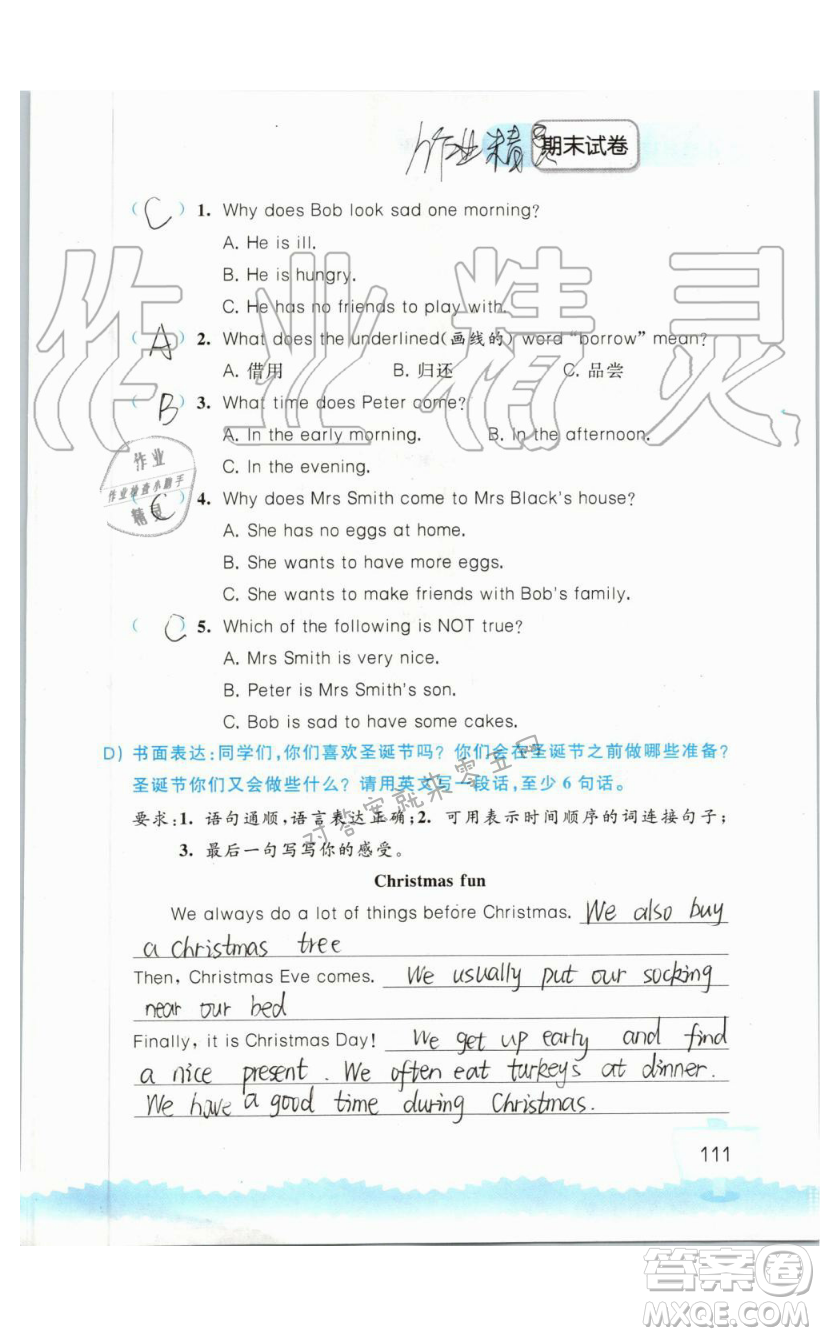 作业精灵 期末试卷
( C ) 1. Why does Bob look sad one morning?
A. He is ill.
B. He is hungry.
C. He has no friends to play with.
( A ) 2. What does the underlined(画线的) word “borrow” mean?
A. 借用 B. 归还 C. 品尝
( B ) 3. What time does Peter come?
A. In the early morning. B. In the afternoon.
C. In the evening.
( C ) 4. Why does Mrs Smith come to Mrs Black's house?
A. She has no eggs at home.
B. She wants to have more eggs.
C. She wants to make friends with Bob's family.
( C ) 5. Which of the following is NOT true?
A. Mrs Smith is very nice.
B. Peter is Mrs Smith's son.
C. Bob is sad to have some cakes.
D) 书面表达:同学们,你们喜欢圣诞节吗? 你们会在圣诞节之前做哪些准备?
圣诞节你们又会做些什么? 请用英文写一段话,至少 6 句话。
要求:1. 语句通顺,语言表达正确;2. 可用表示时间顺序的词连接句子;
3. 最后一句写写你的感受。
Christmas fun
We always do a lot of things before Christmas. We also buy
a christmas tree
Then, Christmas Eve comes. We usually put our socking
near our bed
Finally, it is Christmas Day! We get up early and find
a nice present. We often eat turkeys at dinner.
We have a good time during Christmas.
111
作业精灵
作业
作业检查小助手
精灵
对答案就来零五网
答案卷
MXQE.COM